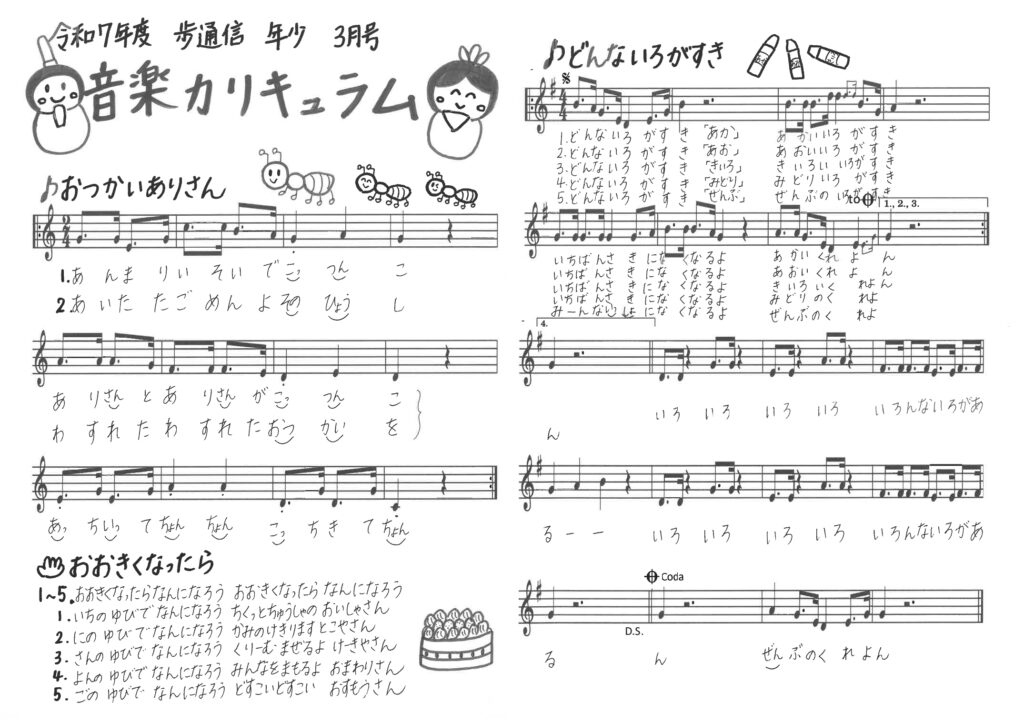 令和7年度 歩通信 年少 3月号
音楽カリキュラム
♪おつかいありさん
2/4
1.あんまりいそいでごっつんこ
2 あいたたごめんよそのひょうし
ありさんとありさんがごっつんこ
わすれたわすれたおつかいを
あっちいってちょんちょん こっちきてちょん
おおきくなったら
1~5.おおきくなったらなんになろう おおきくなったらなんになろう
1.いちのゆびでなんになろう ちくっとちゅうしゃの おいしゃさん
2.にのゆびでなんになろう かみのけきります とこやさん
3.さんのゆびでなんになろう くりーむまぜるよ けーきやさん
4.よんのゆびでなんになろう みんなをまもるよ おまわりさん
5.ごのゆびでなんになろう どすこいどすこい おすもうさん
♪どんないろがすき
4/4
1.どんないろがすき「あか」 あかいいろがすき
2.どんないろがすき「あお」 あおいいろがすき
3.どんないろがすき「きいろ」 きいろいいろがすき
4.どんないろがすき「みどり」 みどりいろがすき
5.どんないろがすき「ぜんぶ」 ぜんぶのいろがすき
to 1., 2., 3.
いちばんさきになくなるよ あかいくれよん
いちばんさきになくなるよ あおいくれよん
いちばんさきになくなるよ きいろいくれよん
いちばんさきになくなるよ みどりのくれよ
みーんないっしょになくなるよ ぜんぶのくれよ
4.
いろ いろ いろ いろ いろんないろがあ
ん
るーー いろ いろ いろ いろ いろんないろがあ
Coda
D.S.
る ん ぜんぶのくれよん